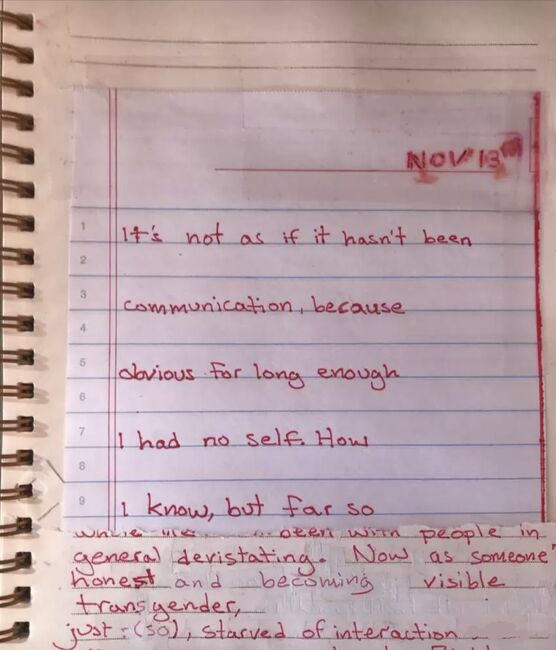 NOV 13
1 It's not as if it hasn't been
2
3 communication, because
4
5 obvious for long enough
6
7 I had no self. How
8
9 I know, but far so
been with people in
general devistating. Now as someone
honest and becoming visible
transgender,
just :(so), starved of interaction